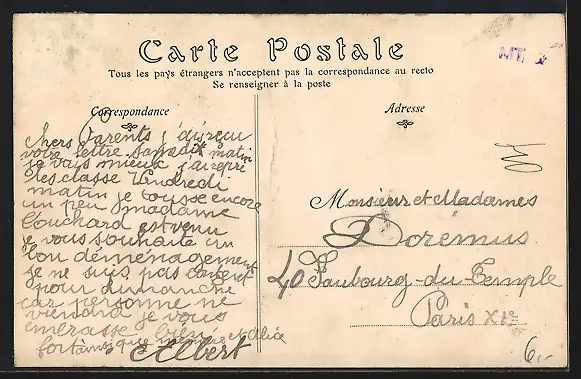 Carte Postale
Tous les pays étrangers n'acceptent pas la correspondance au recto
Se renseigner à la poste
Correspondance
Adresse
MT
chers Parents j'ais reçu
votre lettre samedit matin
je vais mieux j'ai repri
les classe Vendredi
matin je tousse encore
un peu madame
Couchard est venu
je vous souhaite un
bon déménagement
je ne suis pas content
pour dimanche
car personne ne
viendra je vous
embrasse bien
fort ainsi que et Alice
Albert
Monsieur et Madames
Dorémus
40 Faubourg-du-Temple
Paris XIe
6,-